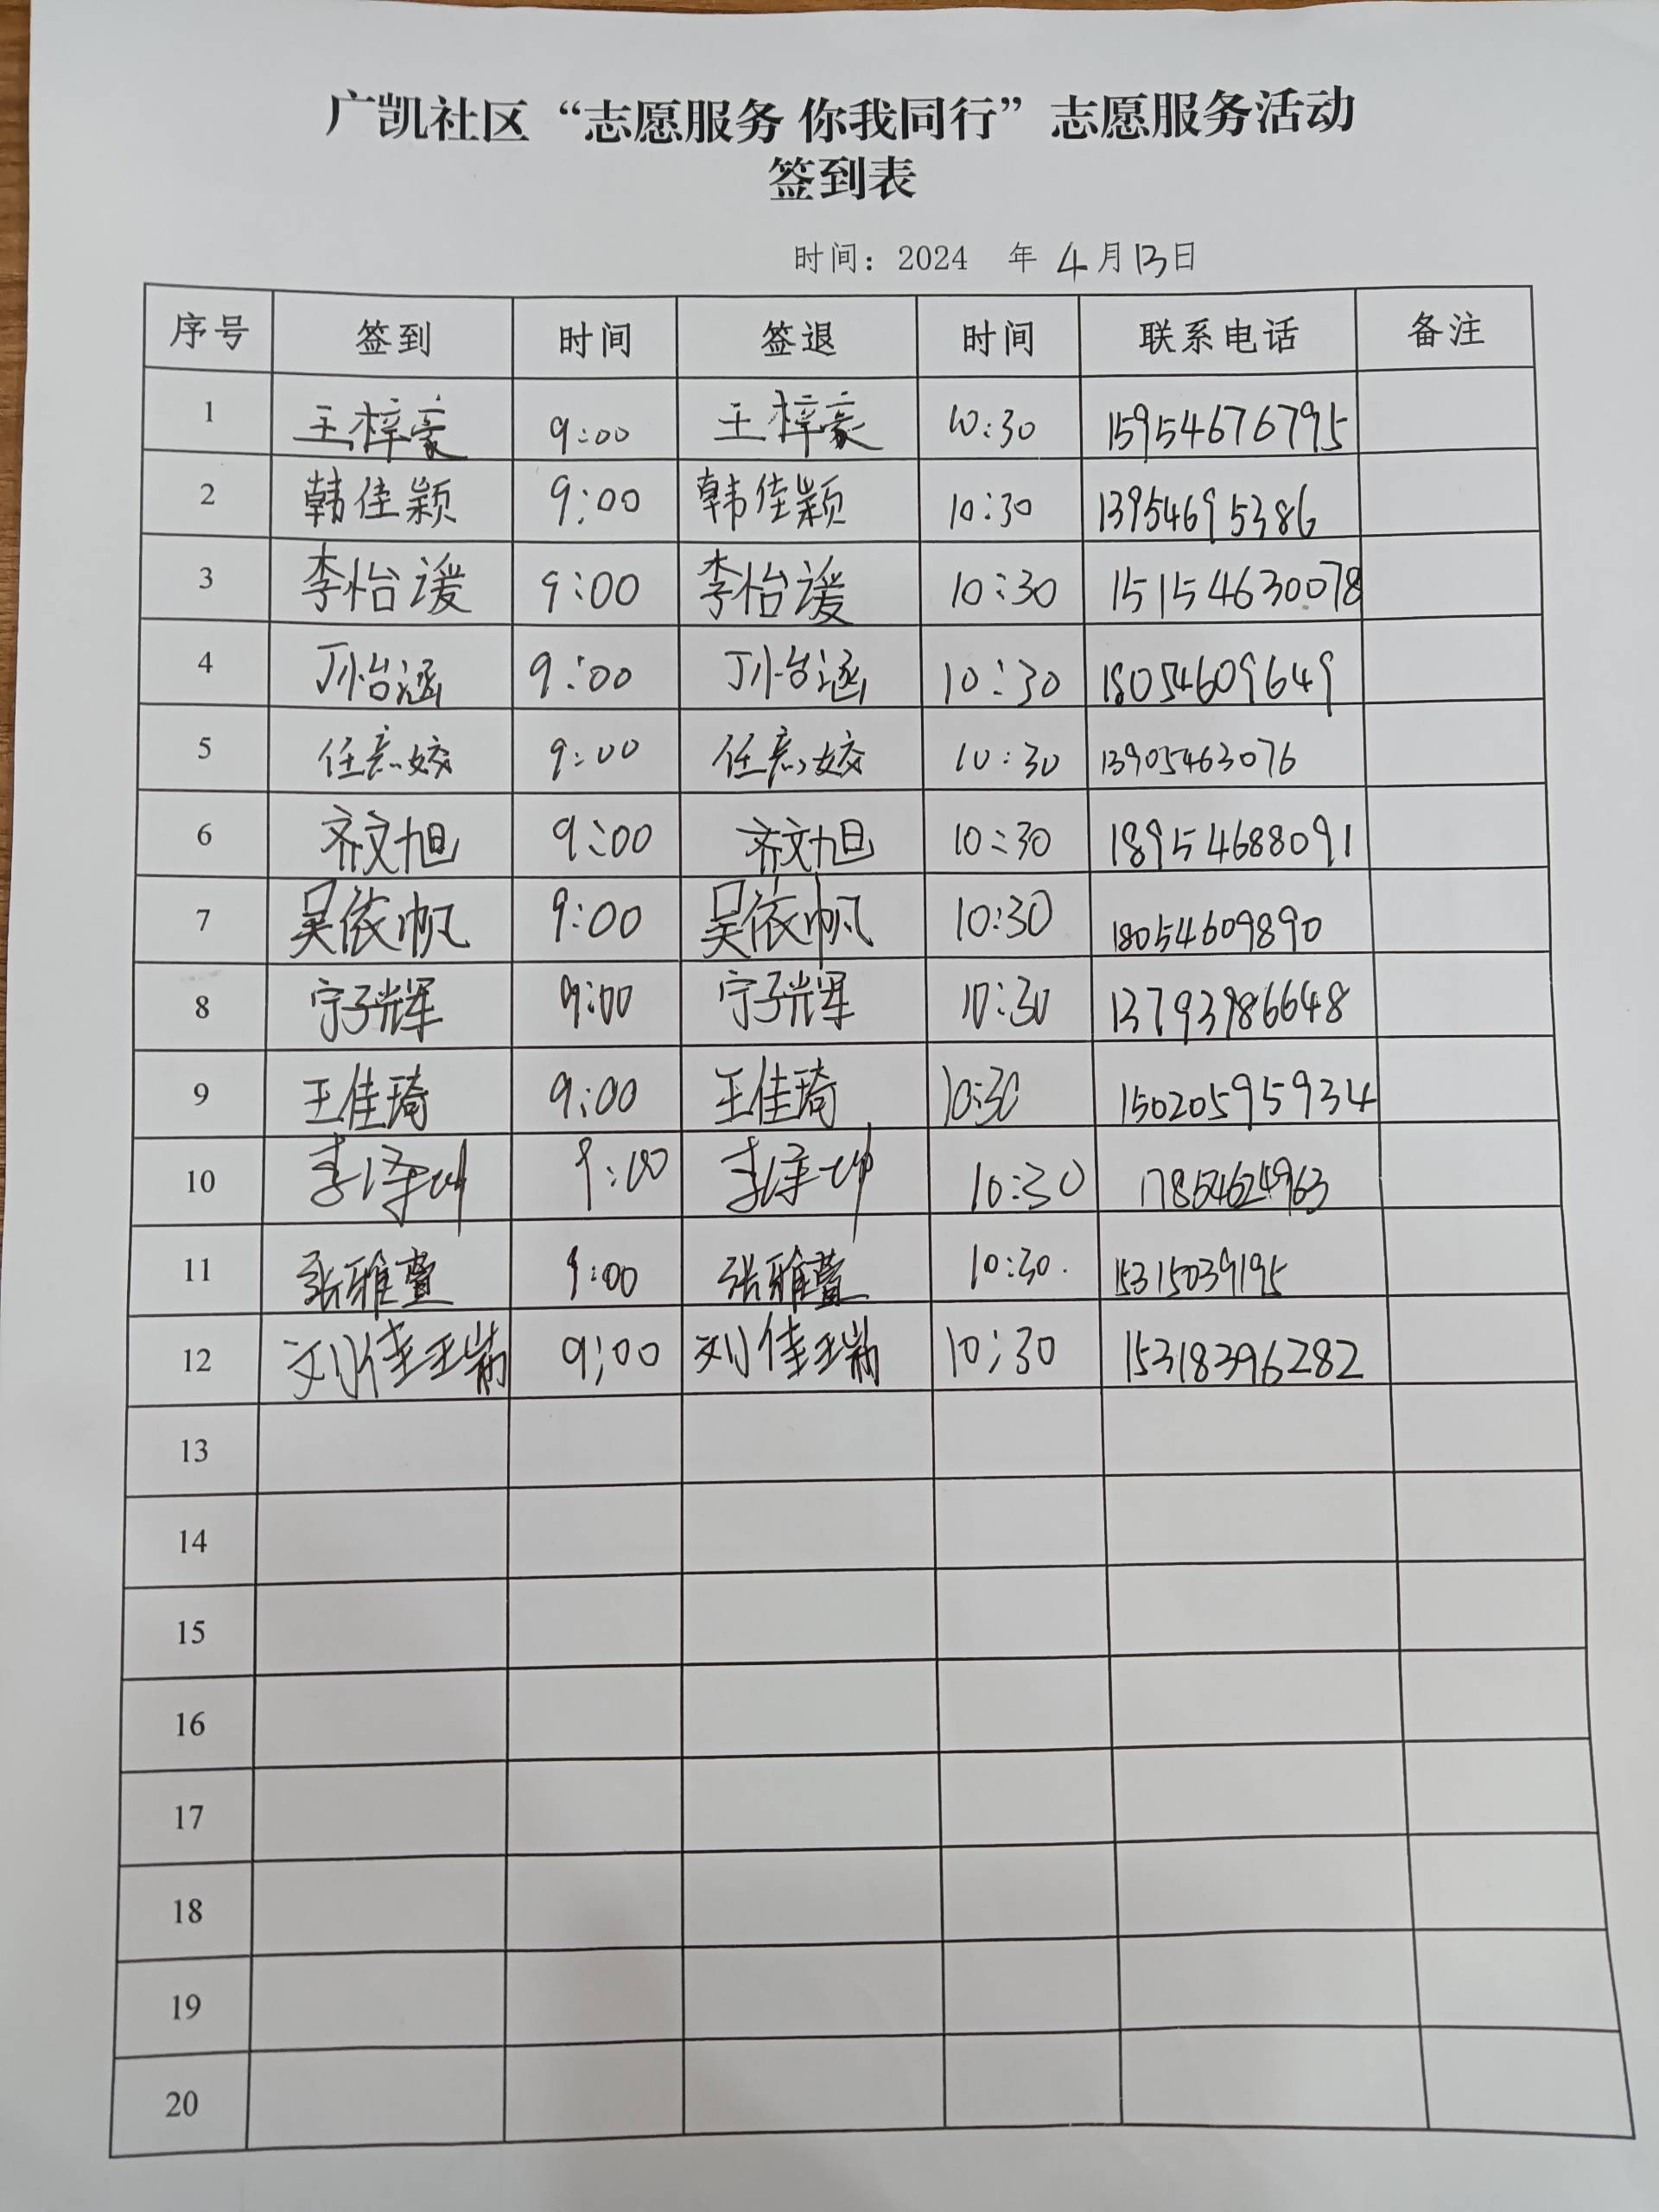 广凯社区“志愿服务 你我同行”志愿服务活动
签到表
时间：2024 年 4月13日
序号 签到 时间 签退 时间 联系电话 备注
1 王梓豪 9:00 王梓豪 10:30 15954676795
2 韩佳颖 9:00 韩佳颖 10:30 13954695386
3 李怡谖 9:00 李怡谖 10:30 15154630078
4 丁怡涵 9:00 丁怡涵 10:30 18054609649
5 任意姣 9:00 任意姣 10:30 13905463076
6 齐文旭 9:00 齐文旭 10:30 18954688091
7 吴依帆 9:00 吴依帆 10:30 18054609890
8 宁子辉 9:00 宁子辉 10:30 13793986648
9 王佳琦 9:00 王佳琦 10:30 15020595934
10 李泽坤 9:00 李泽坤 10:30 17854624963
11 张雅萱 9:00 张雅萱 10:30. 15315039195
12 刘佳瑞 9:00 刘佳瑞 10:30 15318396282
13
14
15
16
17
18
19
20